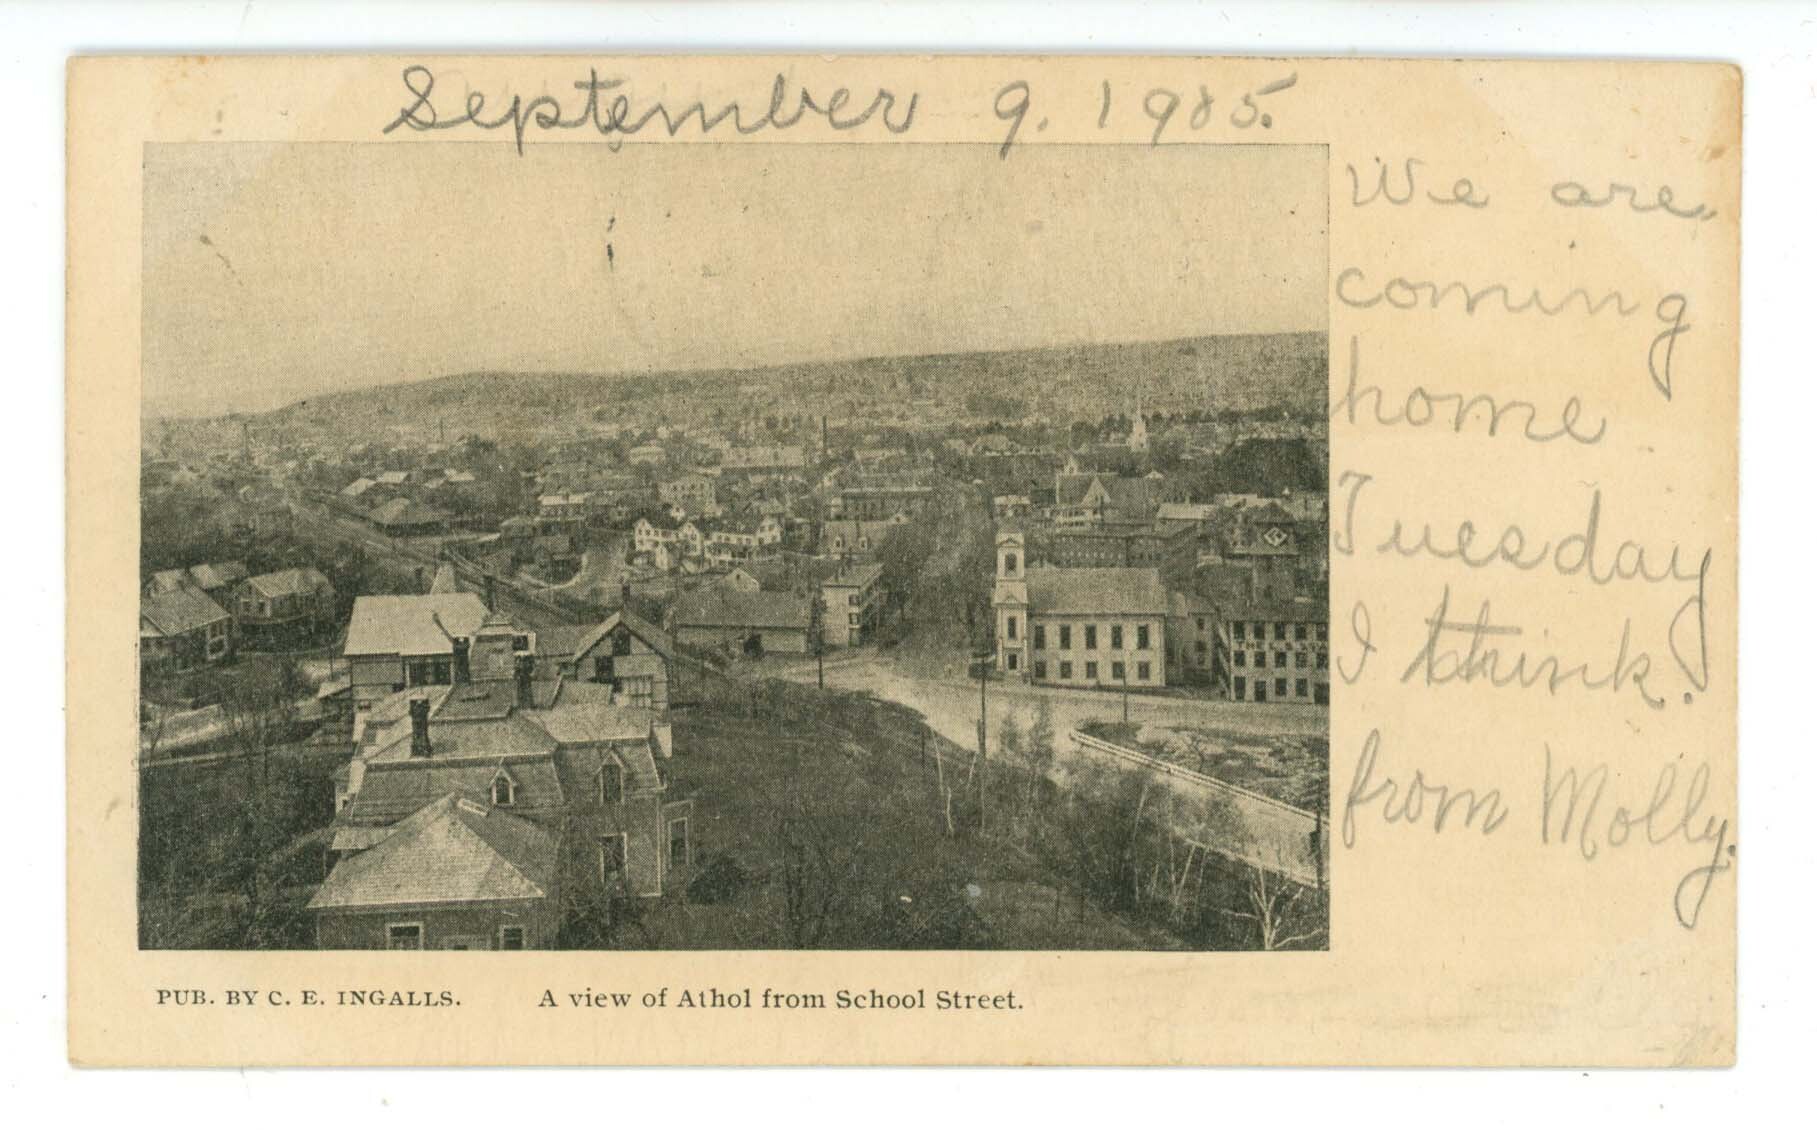 September 9. 1905.
We are
coming
home
Tuesday
I think.
from Molly.
PUB. BY C. E. INGALLS. A view of Athol from School Street.